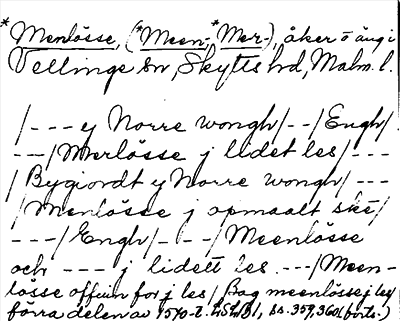 *Menlösse, (*Meen-, *Mer-), åker o äng i
Vellinge sn, Skytts hd, Malm. l.
/--- y Norre wongh/--/Engh/
---/Merlösse j lidet les/---
/Bygiordt y Norre wongh/---
/Menlösse j opmaalt ske/
---/Engh/---/Meenlösse
och --- j lidett les ---/Meen-
lösse offuen for j les/Bag meenlösse j les/
förra delen av 1570-t. LSLB1, ss. 359, 360 (forts.)